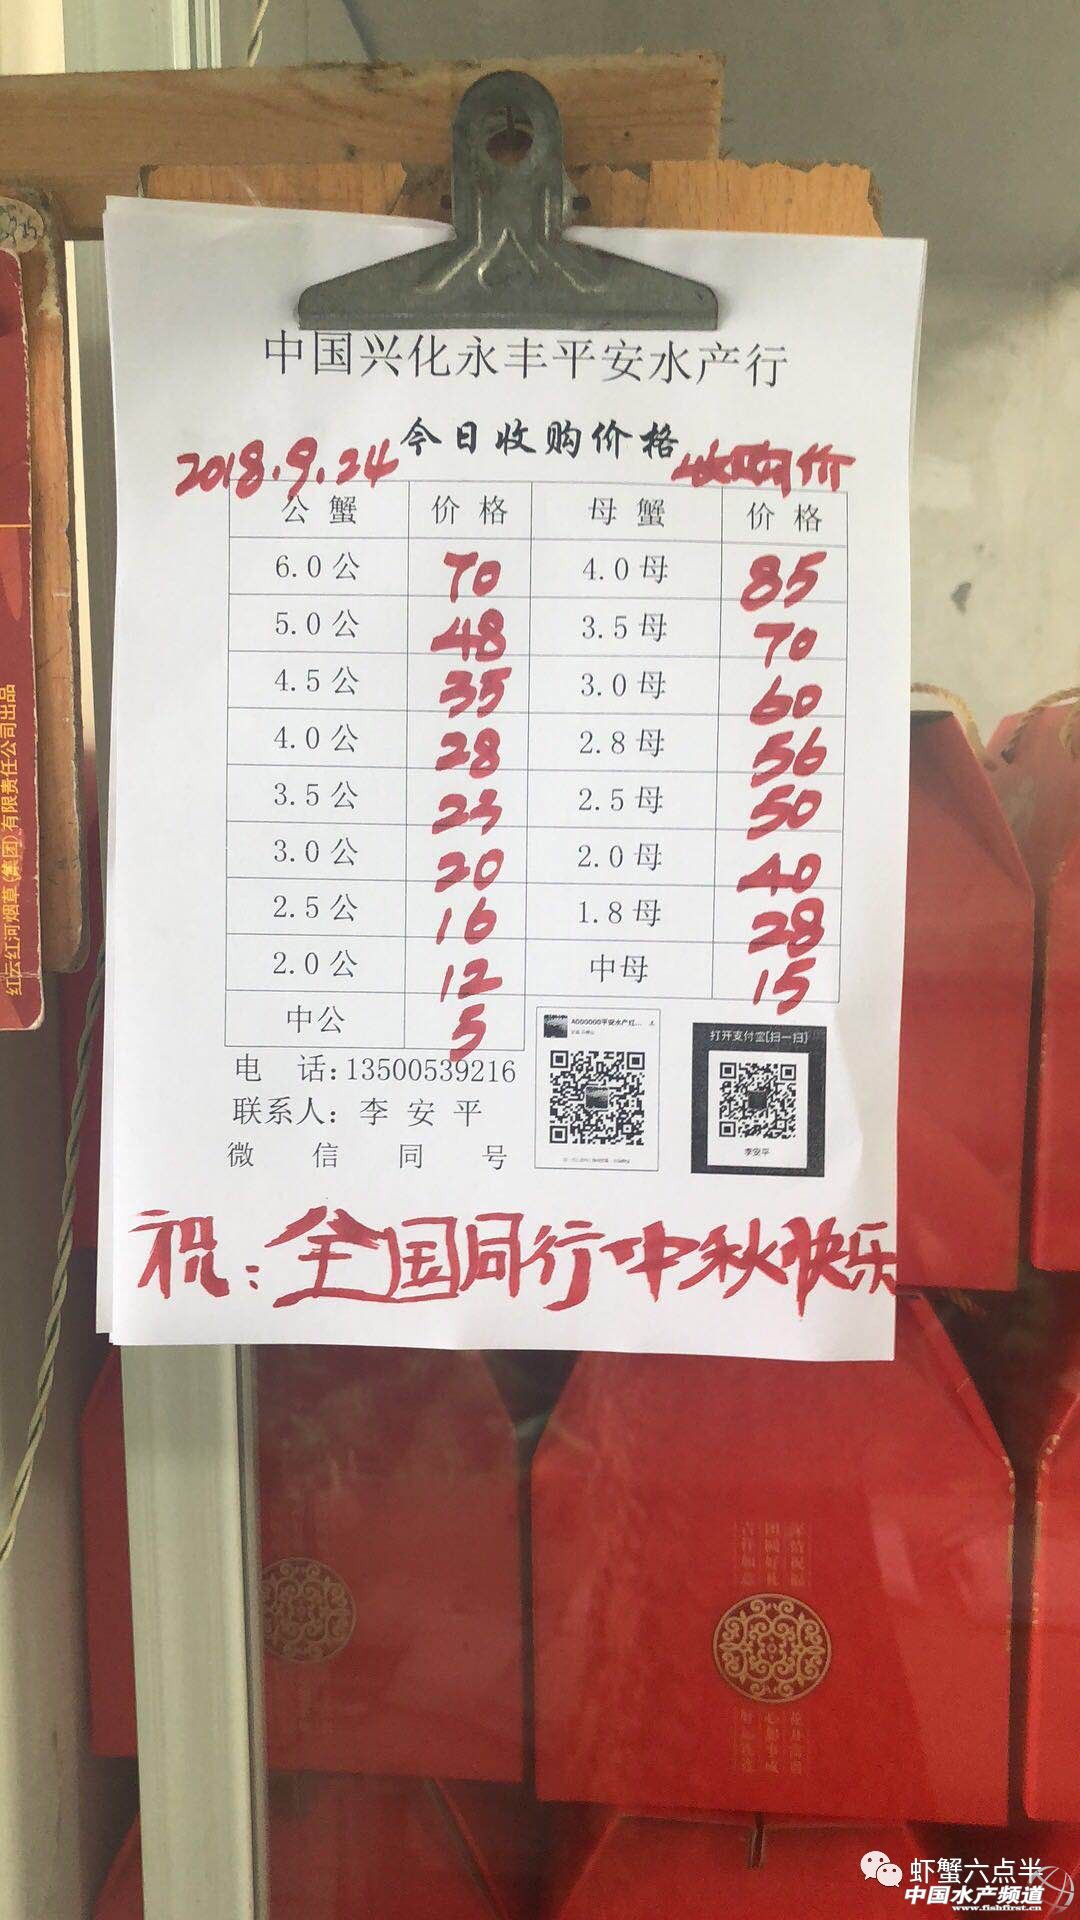 中国兴化永丰平安水产行
今日收购价格
2018.9.24 收购价
公蟹 价格 母蟹 价格
6.0公 70 4.0母 85
5.0公 48 3.5母 70
4.5公 35 3.0母 60
4.0公 28 2.8母 56
3.5公 23 2.5母 50
3.0公 20 2.0母 40
2.5公 16 1.8母 28
2.0公 12 中母 15
中公 5
电 话:13500539216
联系人: 李安平
微信同号
A000000平安水产红...
打开支付宝[扫一扫]
李安平
祝:全国同行中秋快乐
红云红河烟草(集团)有限责任公司出品
吉祥如意
团圆好礼
深情祝福
心想事成
虾蟹六点半
中国水产频道
www.fishfirst.cn